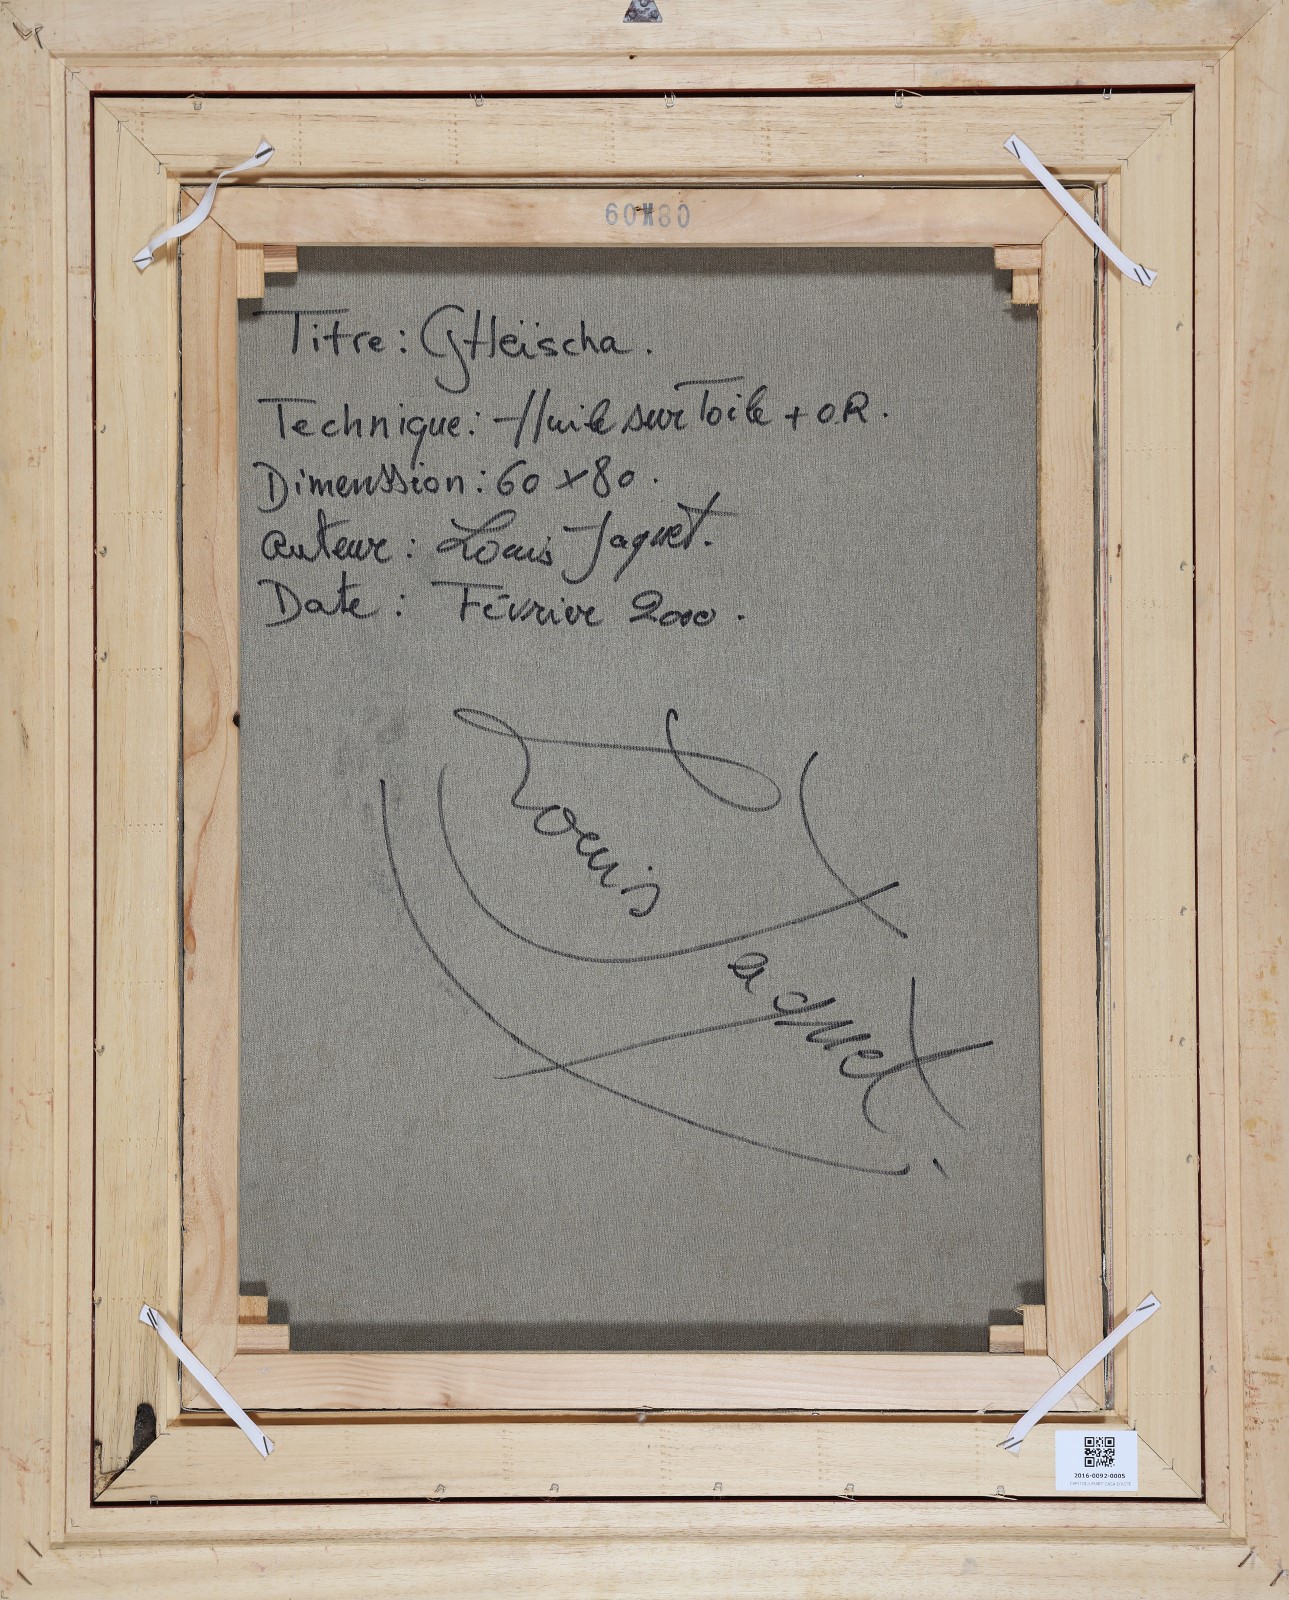 60X80
Titre: Gtleïscha.
Technique: Huile sur Toile + OR.
Dimenssion: 60 x 80.
auteur: Louis Jaquet.
Date: Février 2000.
Louis
Jaquet
2016-0092-0005